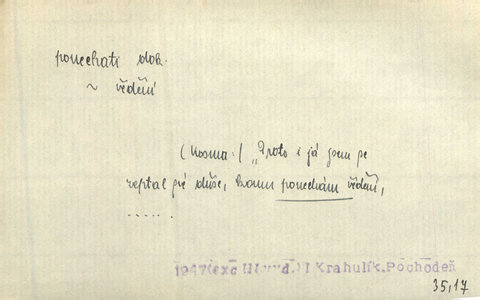 ponechati dok.
~ vědění
(Kosma:) „Proto i já jsem se
zeptal své duše, komu ponechám vědění,
.....
1947(exc II.vyd.) Krahulík, Pochodeň
35,17